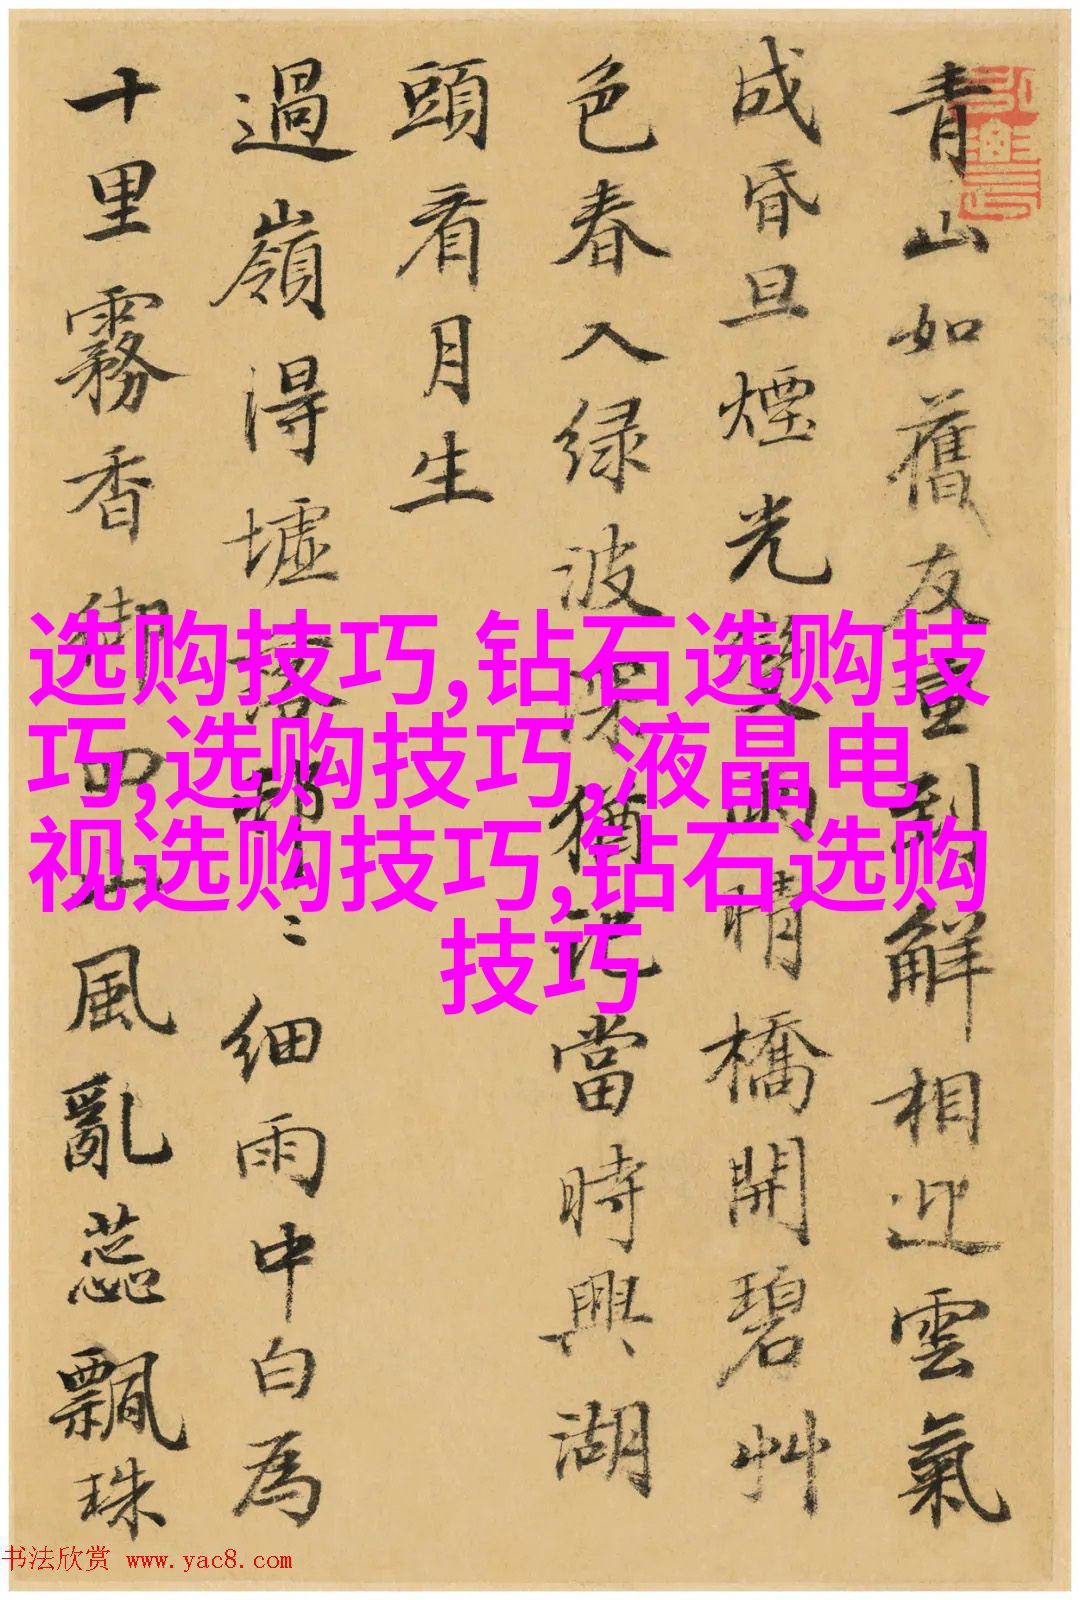 青山如舊友重到解相迎雲氣
成昏旦煙光變雨晴橋開碧艸
色春入绿波深猶記當時興湖
頭看月生
過嶺得墟落邨〻細雨中白為
十里霧香四山風亂蕊飄珠
选购技巧,钻石选购技
巧,选购技巧,液晶电
视选购技巧,钻石选购
技巧
书法欣赏 www.yac8.com